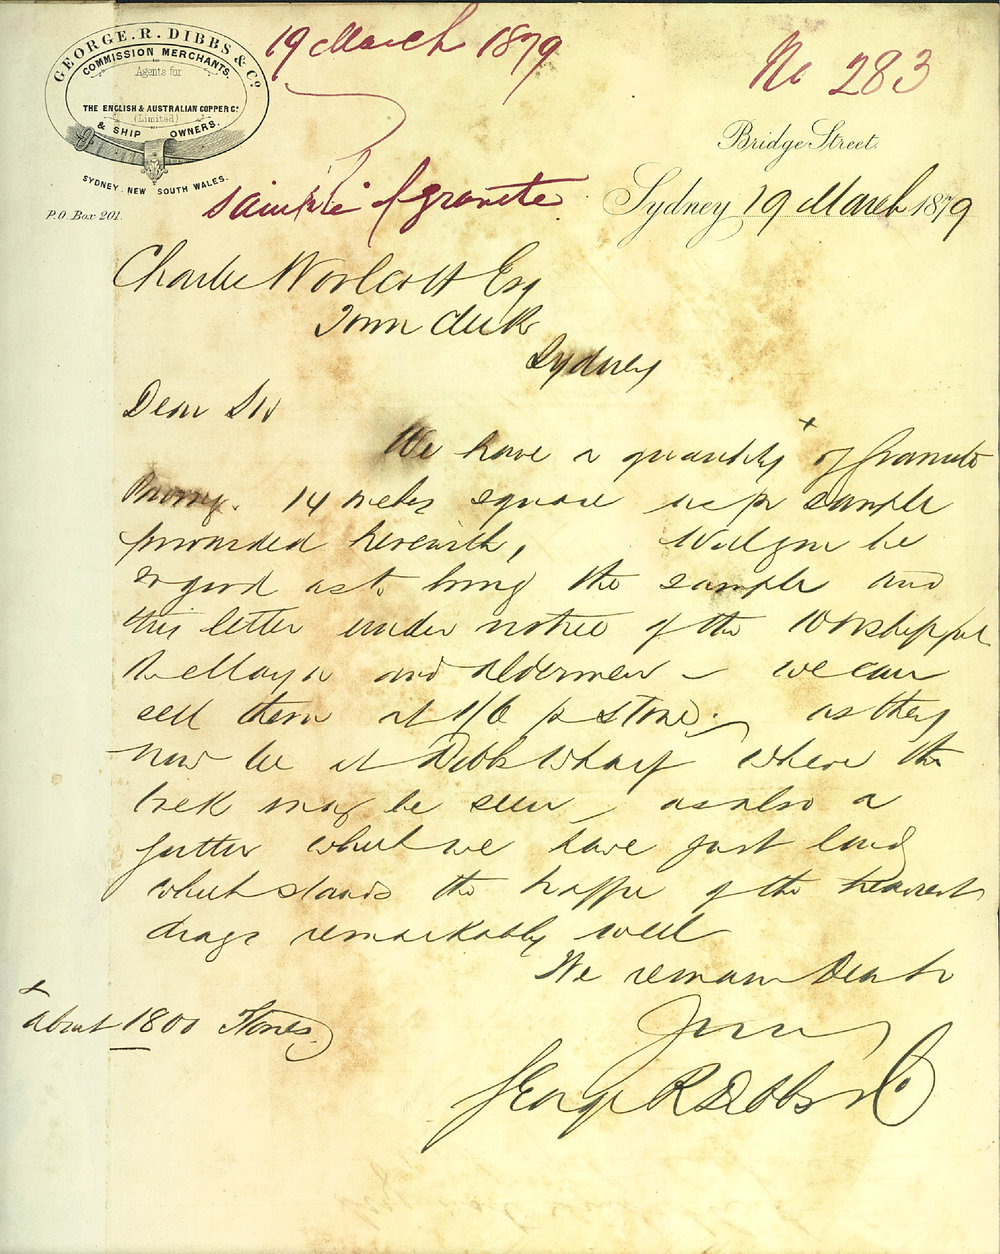 GEORGE. R. DIBBS & Co.
COMMISSION MERCHANTS.
Agents for
THE ENGLISH & AUSTRALIAN COPPER Co.
(Limited)
& SHIP OWNERS.
SYDNEY. NEW SOUTH WALES.
P.O. Box 201.
19 March 1879
No 283
sample of granite
Bridge Street.
Sydney 19 March 1879
Charles Woolcott Esq
Town Clerk
Sydney
Dear Sir
We have a quantity x of Granite
Paving. 14 inches square as pr sample
forwarded herewith, Will you be
so good as to bring the sample and
this letter under notice of the Worshipful
the Mayor and Aldermen — we can
sell them at 1/6 pr stone. as they
now lie at Dibbs Wharf where the
bulk may be seen, as also a
gutter which we have just laid
which stands the traffic of the heaviest
drays remarkably well
We remain Dear Sir
Yours
George R Dibbs & Co
x
about 1800 Stones.